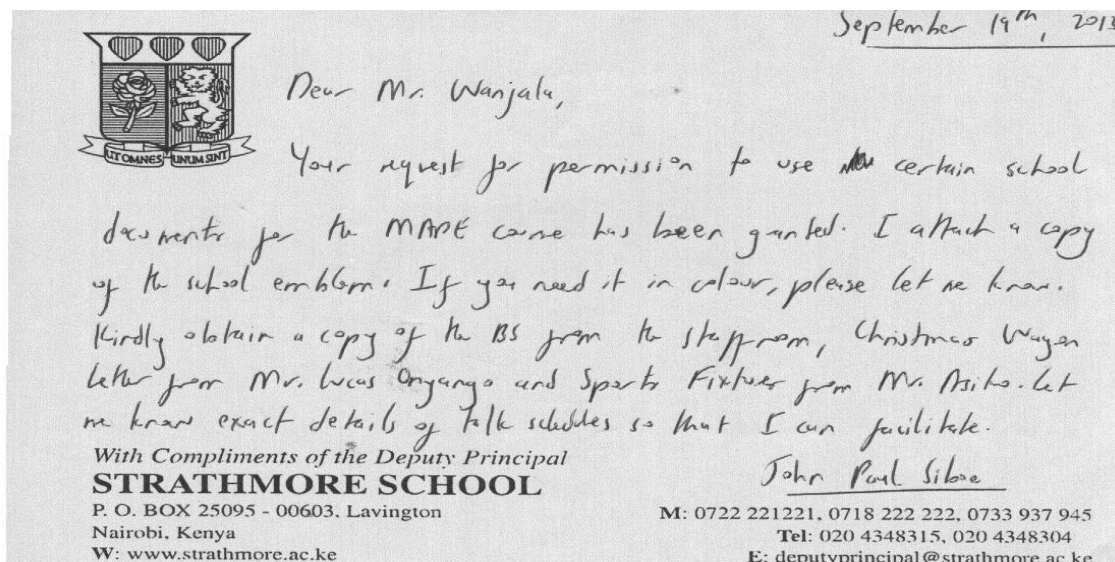 September 19th, 2013
UT OMNES UNUM SINT
Dear Mr. Wanjala,
Your request for permission to use certain school
documents for the MAPE course has been granted. I attach a copy
of the school emblem. If you need it in colour, please let me know.
Kindly obtain a copy of the BS from the staffroom, Christmas Wagon
letter from Mr. Lucas Onyango and Sports Fixtures from Mr. Asiko. Let
me know exact details of talk schedules so that I can facilitate.
With Compliments of the Deputy Principal
John Paul Siboe
STRATHMORE SCHOOL
P. O. BOX 25095 - 00603, Lavington
Nairobi, Kenya
W: www.strathmore.ac.ke
M: 0722 221221, 0718 222 222, 0733 937 945
Tel: 020 4348315, 020 4348304
E: deputyprincipal@strathmore.ac.ke